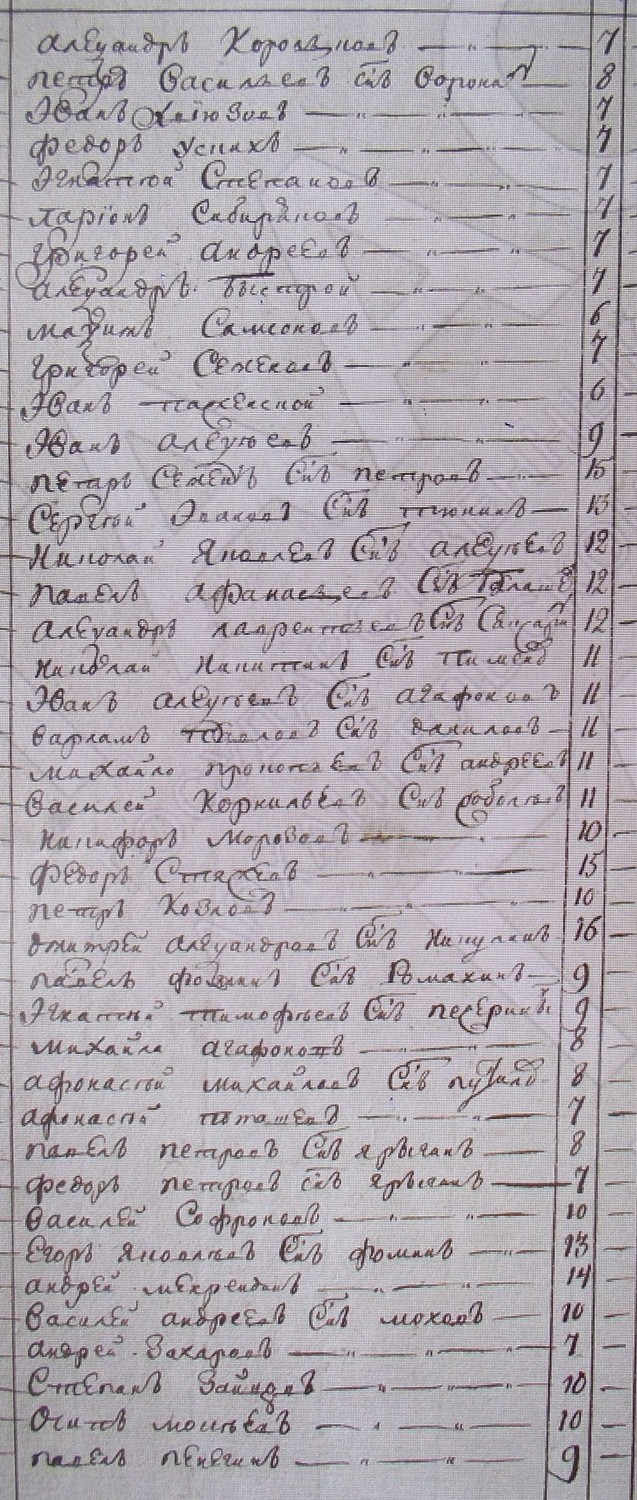 алеѯандръ Королковъ — „ — 7
петръ Васильевъ сн҃ъ Ворона — 8
Іванъ — „ — „ — 7
федоръ успихъ — „ — „ — 7
Ігнатей Степановъ — „ — „ 7
ларїонъ Сибиряковъ — „ — „ 7
григорей андреевъ — „ — „ 7
алеѯандръ быстрой — „ — „ 7
маѯимъ Самсоновъ — „ — „ 6
григорей Семеновъ — „ — „ 7
Іванъ — „ — „ 6
Іванъ алеѯѣевъ — „ — „ 9
петаръ Семенъ Сн҃ъ петровъ — „ 15
Сергѣй Ивановъ Сн҃ъ тюнинъ — 13
Николай Яковлевъ Сн҃ъ алеѯѣевъ 12
павелъ афанасьевъ Сн҃ъ 12
алеѯандръ лаврентьевъ Сн҃ъ 12
николай никитинъ Сн҃ъ пименов 11
Іванъ алеѯѣевъ Сн҃ъ агафоновъ 11
варламъ Сн҃ъ даниловъ — 11
михайло прокопьевъ Сн҃ъ андреевъ 11
василей Корнильевъ Сн҃ъ соболевъ 11
никифоръ морозовъ — „ 10
федоръ Стахеевъ — „ — 15
петръ Козловъ — „ — „ 10
дмитрей алеѯандровъ Сн҃ъ никулинъ 16
павелъ фоминъ Сн҃ъ Ромахинъ — 9
Ігнатей тимофѣевъ Сн҃ъ 9
михайла агафоновъ — „ 8
афонасѣй михайловъ Сн҃ъ путилов 8
афонасѣй поташевъ — „ — 7
павелъ петровъ Сн҃ъ ярыгинъ — 8
федоръ петровъ сн҃ъ ярыгинъ — 7
василей Софроновъ — „ — „ 10
Егоръ Яковлевъ Сн҃ъ фоминъ — „ 13
андрей — „ — „ 14
василей андреевъ Сн҃ъ моховъ — 10
андрей Захаровъ — „ — „ 7
Степанъ Зайцовъ — „ — „ 10
Осипъ мосѣевъ — „ — „ 10
павелъ пенегинъ — „ — „ 9